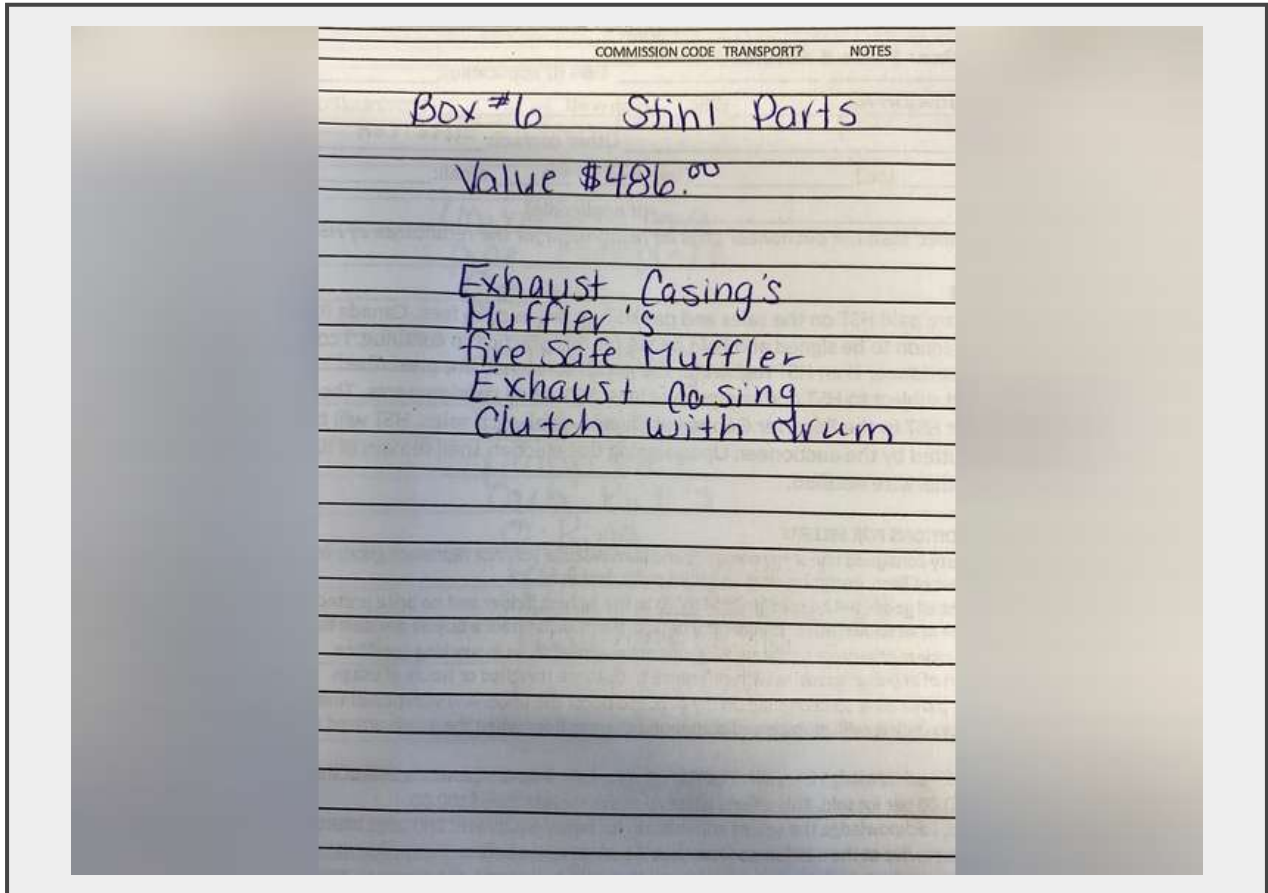 COMMISSION CODE TRANSPORT? NOTES
Box #6 Stihl Parts
Value $486.00
Exhaust Casing's
Muffler's
fire Safe Muffler
Exhaust Casing
Clutch with drum